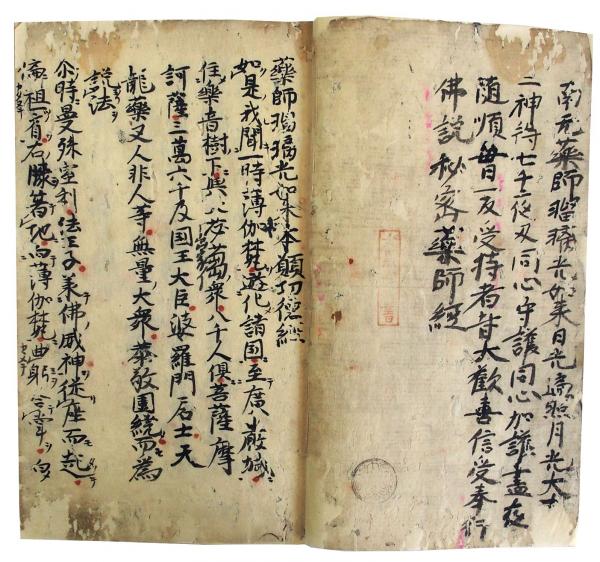 南无藥師瑠璃光如来日光遍照月光大士
二神将七千夜叉同心守護同心加護盡夜
随順毎日一反受持者皆大歓喜信受奉行
佛説秘密藥師経
藥師瑠璃光如来本願功徳経
如是我聞一時薄伽梵遊化諸国至廣嚴城
住樂音樹下與大苾蒭衆八千人倶菩薩摩
訶薩三萬六千及国王大臣婆羅門居士天
龍藥叉人非人等無量大衆恭敬圍繞而為
説法
尒時曼殊室利法王子承佛威神従座而起
右膝著地向薄伽梵曲躬合掌白